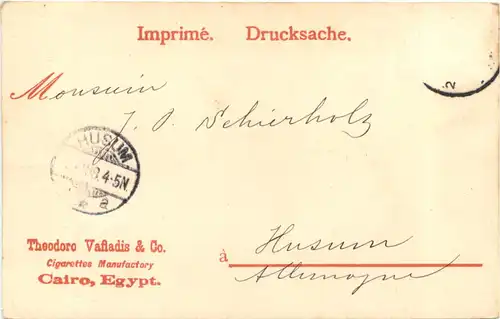 Imprimé. Drucksache.
Monsieur
J. P. Schierholz
HUSUM
4-5N.
a
Theodoro Vafiadis & Co.
Cigarettes Manufactory
Cairo, Egypt.
à Husum
Allemagne
2